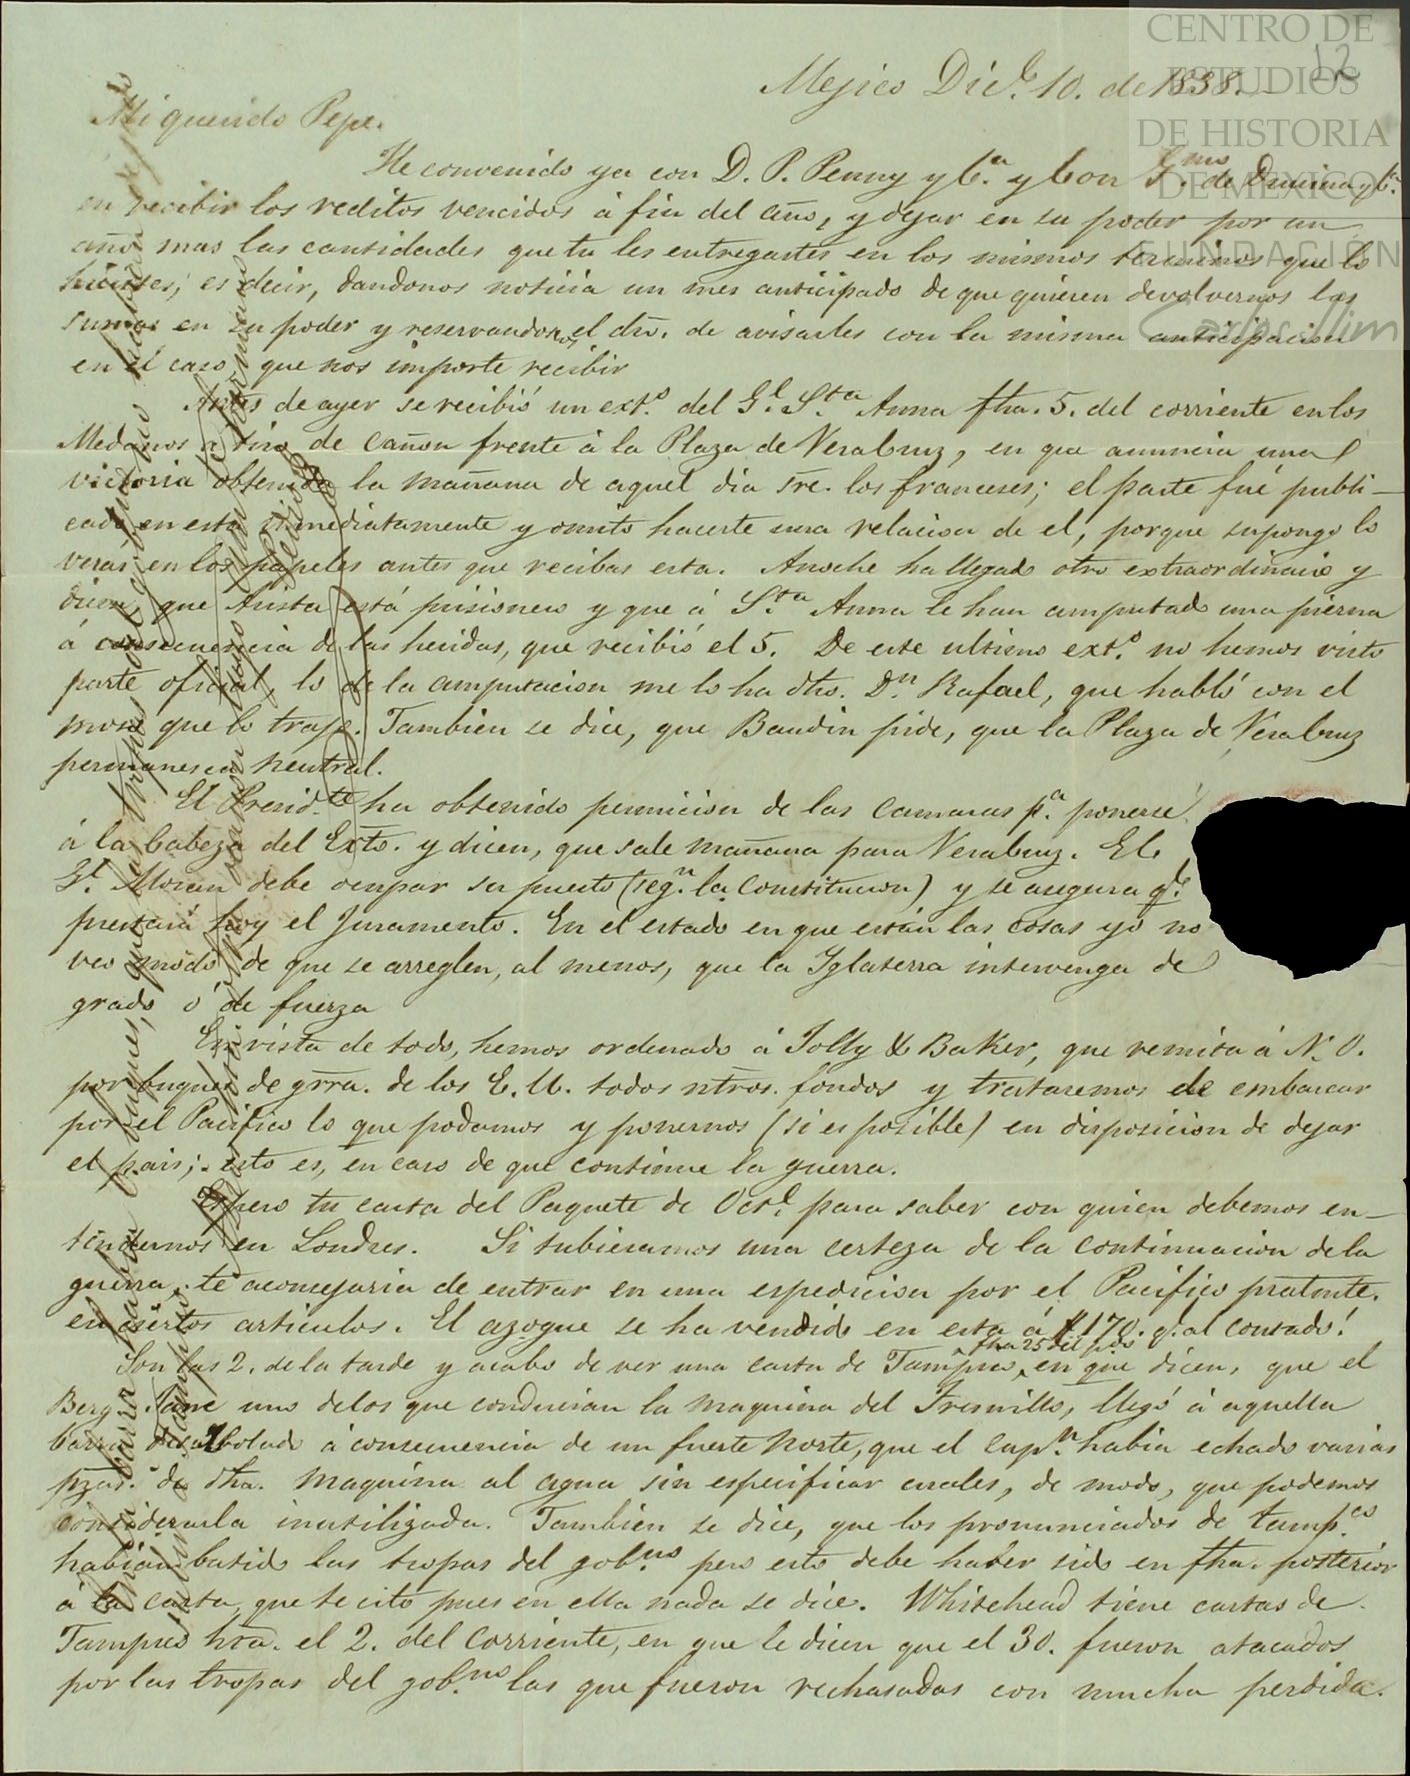 CENTRO DE
ESTUDIOS
DE HISTORIA
DE MEXICO
FUNDACIÓN
Carlos Slim
12
Mejico Dic.e 10. de 1838.
Mi querido Pepe.
He convenido ya con D. P. Penny y C.a y con de Drusina y C.a
en recibir los reditos vencidos á fin del año, y dejar en su poder por un
año mas las cantidades que tu les entregastes en los mismos terminos que lo
hicistes; es decir, dandonos noticia un mes anticipado de que quieren devolvernos las
sumas en su poder y reservandonos el dro. de avisarles con la misma anticipacion
en el caso, que nos importe recibir
Antes de ayer se recibió un ext.o del G.l S.ta Anna fha. 5. del corriente en los
Medanos a tiro de cañon frente á la Plaza de VeraCruz, en que anuncia una
victoria obtenida la mañana de aquel dia sre. los franceses; el parte fué publi-
cado en esta inmediatamente y omito hacerte una relacion de el, porque supongo lo
veras en los papeles antes que recibas esta. Anoche ha llegado otro extraordinario y
dicen, que Arista está prisionero y que á S.ta Anna le han amputado una pierna
á consecuencia de las heridas, que recibió el 5. De este ultimo ext.o no hemos visto
parte oficial, lo de la amputacion me lo ha dho. D.n Rafael, que habló con el
moso que lo trajo. Tambien se dice, que Baudin pide, que la Plaza de VeraCruz
permanesca neutral.
El Presid.te ha obtenido permicion de las camaras p.a ponerse
á la Cabeza del Exto. y dicen, que sale mañana para VeraCruz. El
G.l Moran debe ocupar su puesto (seg.n la Constitucion) y se asegura q.e
prestará hoy el Juramento. En el estado en que están las cosas yo no
veo modo de que se arreglen, al menos, que la Iglaterra intervenga de
grado ó de fuerza
En vista de todo, hemos ordenado á Jolly & Baker, que remita á N. O.
por buques de grra. de los E. U. todos ntros. fondos y trataremos de embarcar
por el Pacifico lo que podamos y ponernos (si es posible) en disposicion de dejar
el pais; esto es, en caso de que continue la guerra.
Espero tu carta del Paquete de Oct.e para saber con quien debemos en-
tendernos en Londres. Si tubieramos una certeza de la continuacion de la
guerra, te aconsejaria de entrar en una espedicion por el Pacifico pralmte.
en ciertos articulos. El azogue se ha vendido en esta á $170. q.l al contado!
Son las 2. de la tarde y acabo de ver una carta de Tampico fha 25 del p.do en que dicen, que el
Berg Jane uno de los que conducian la maquina del Fresnillo, llegó á aquella
barra desarbolado á consecuencia de un fuerte Norte, que el cap.n habia echado varias
pzas. de dha. maquina al agua sin especificar cuales, de modo, que podemos
considerarla inutilizada. Tambien se dice, que los pronunciados de Tamp.co
habian batido las tropas del gob.no pero esto debe haber sido en fha. posterior
á la carta, que te cito pues en ella nada se dice. Whitehead tiene cartas de
Tampico hta. el 2. del Corriente, en que le dicen que el 30. fueron atacados
por las tropas del gob.no las que fueron rechasadas con mucha perdida.